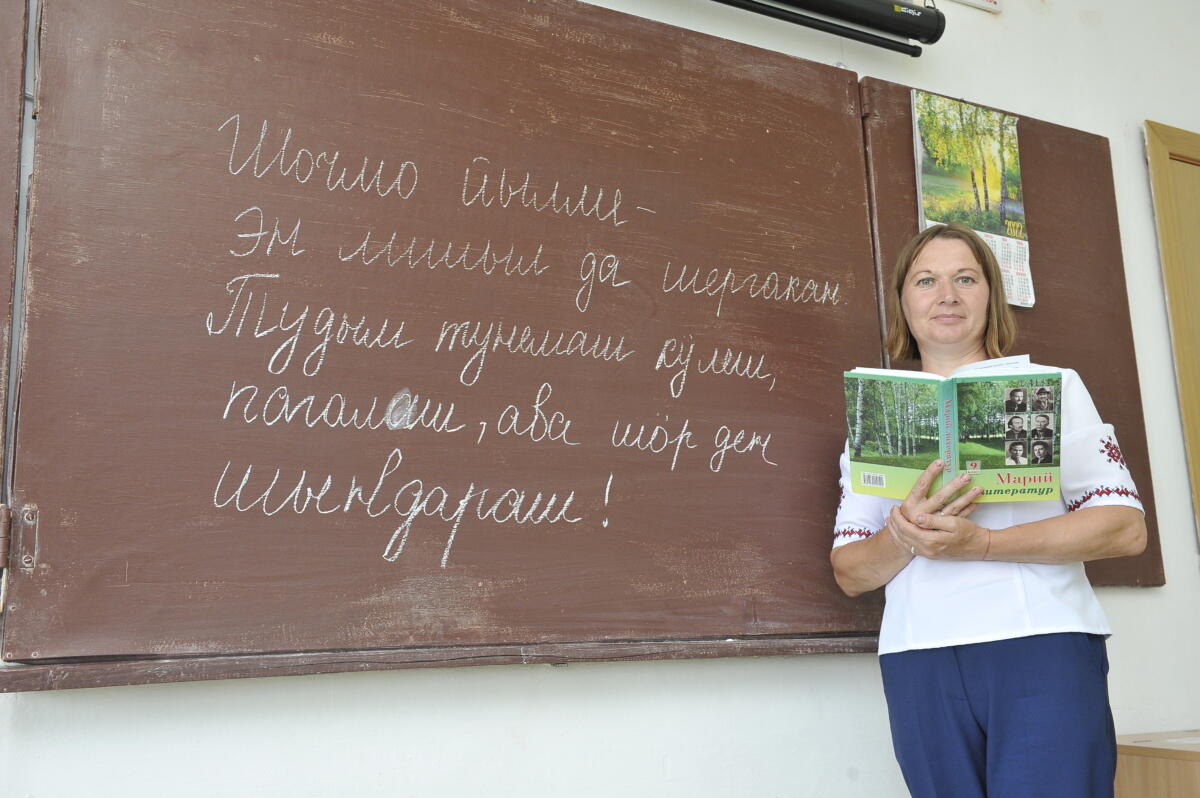 Шочмо йылме –
Эн лишыл да шергакан.
Тудым тунемаш кӱлеш,
пагалаш, ава шӧр ден
шыҥдараш!
2022
9
класс
Марий
литератур